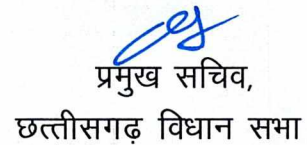 प्रमुख सचिव,
छत्तीसगढ़ विधान सभा